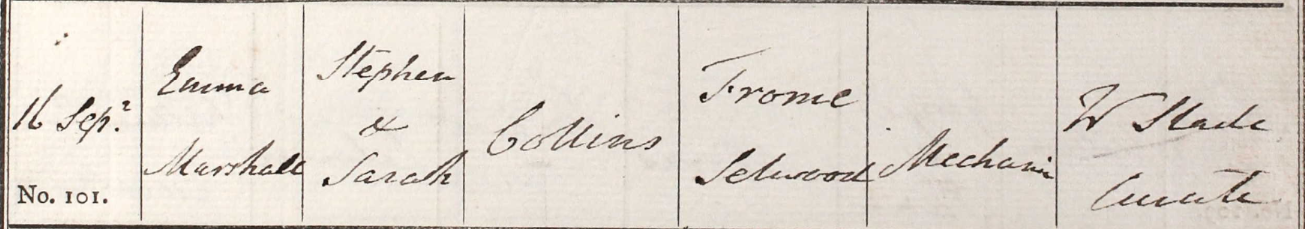 16 Sepr.
No. 101.
Emma
Marshall
Stephen
&
Sarah
Collins
Frome
Selwood
Mechanic
W Slade
Curate